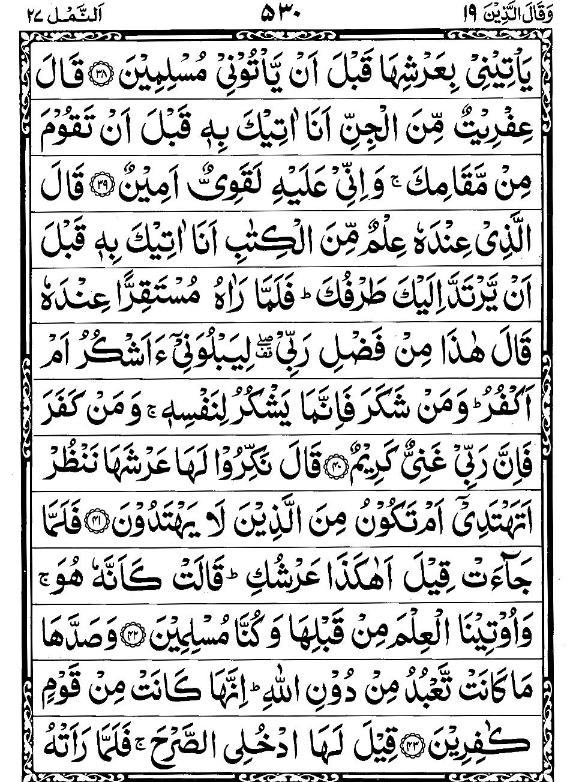 وَقَالَ الَّذِيْنَ ١٩ ۵۳۰ اَلنَّمْل ٢٧
يَاْتِيْنِيْ بِعَرْشِهَا قَبْلَ اَنْ يَّاْتُوْنِيْ مُسْلِمِيْنَ ﴿۳۸﴾ قَالَ
عِفْرِيْتٌ مِّنَ الْجِنِّ اَنَا اٰتِيْكَ بِهٖ قَبْلَ اَنْ تَقُوْمَ
مِنْ مَّقَامِكَ ۚ وَاِنِّيْ عَلَيْهِ لَقَوِيٌّ اَمِيْنٌ ﴿۳۹﴾ قَالَ
الَّذِيْ عِنْدَهٗ عِلْمٌ مِّنَ الْكِتٰبِ اَنَا اٰتِيْكَ بِهٖ قَبْلَ
اَنْ يَّرْتَدَّ اِلَيْكَ طَرْفُكَ ؕ فَلَمَّا رَاٰهُ مُسْتَقِرًّا عِنْدَهٗ
قَالَ هٰذَا مِنْ فَضْلِ رَبِّيْ ۖ لِيَبْلُوَنِيْٓ ءَاَشْكُرُ اَمْ
اَكْفُرُ ؕ وَمَنْ شَكَرَ فَاِنَّمَا يَشْكُرُ لِنَفْسِهٖ ۚ وَمَنْ كَفَرَ
فَاِنَّ رَبِّيْ غَنِيٌّ كَرِيْمٌ ﴿۴۰﴾ قَالَ نَكِّرُوْا لَهَا عَرْشَهَا نَنْظُرْ
اَتَهْتَدِيْٓ اَمْ تَكُوْنُ مِنَ الَّذِيْنَ لَا يَهْتَدُوْنَ ﴿۴۱﴾ فَلَمَّا
جَآءَتْ قِيْلَ اَهٰكَذَا عَرْشُكِ ؕ قَالَتْ كَاَنَّهٗ هُوَ ۚ
وَاُوْتِيْنَا الْعِلْمَ مِنْ قَبْلِهَا وَكُنَّا مُسْلِمِيْنَ ﴿۴۲﴾ وَصَدَّهَا
مَا كَانَتْ تَّعْبُدُ مِنْ دُوْنِ اللّٰهِ ؕ اِنَّهَا كَانَتْ مِنْ قَوْمٍ
كٰفِرِيْنَ ﴿۴۳﴾ قِيْلَ لَهَا ادْخُلِي الصَّرْحَ ۚ فَلَمَّا رَاَتْهُ